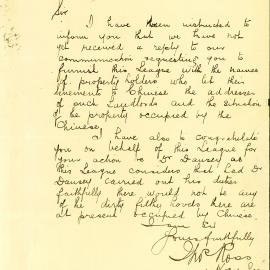 Sir
I have been instructed to
inform you that we have not
yet received a reply to our
communication requesting you to
furnish this League with the names
of property holders who let their
tenements to Chinese the addresses
of such Landlords and the situation
of the property occupied by the
Chinese
I have also to congratulate
you on behalf of this League for
your action re Dr Dansey as
this League considers that had Dr
Dansey carried out his duties
faithfully there would not be any
of the dirty filthy hovels there are
at present occupied by Chinese
I am Sir
Yours faithfully
Jno Ross